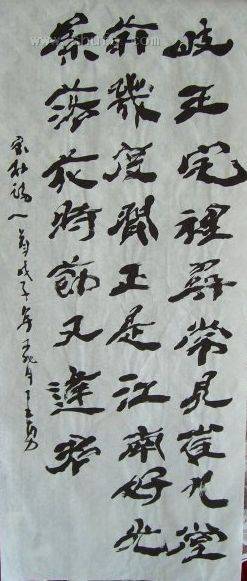 岐王宅裡尋常見崔九堂
前幾度聞正是江南好风
景落花時節又逢君
杜詩一首戊子年月